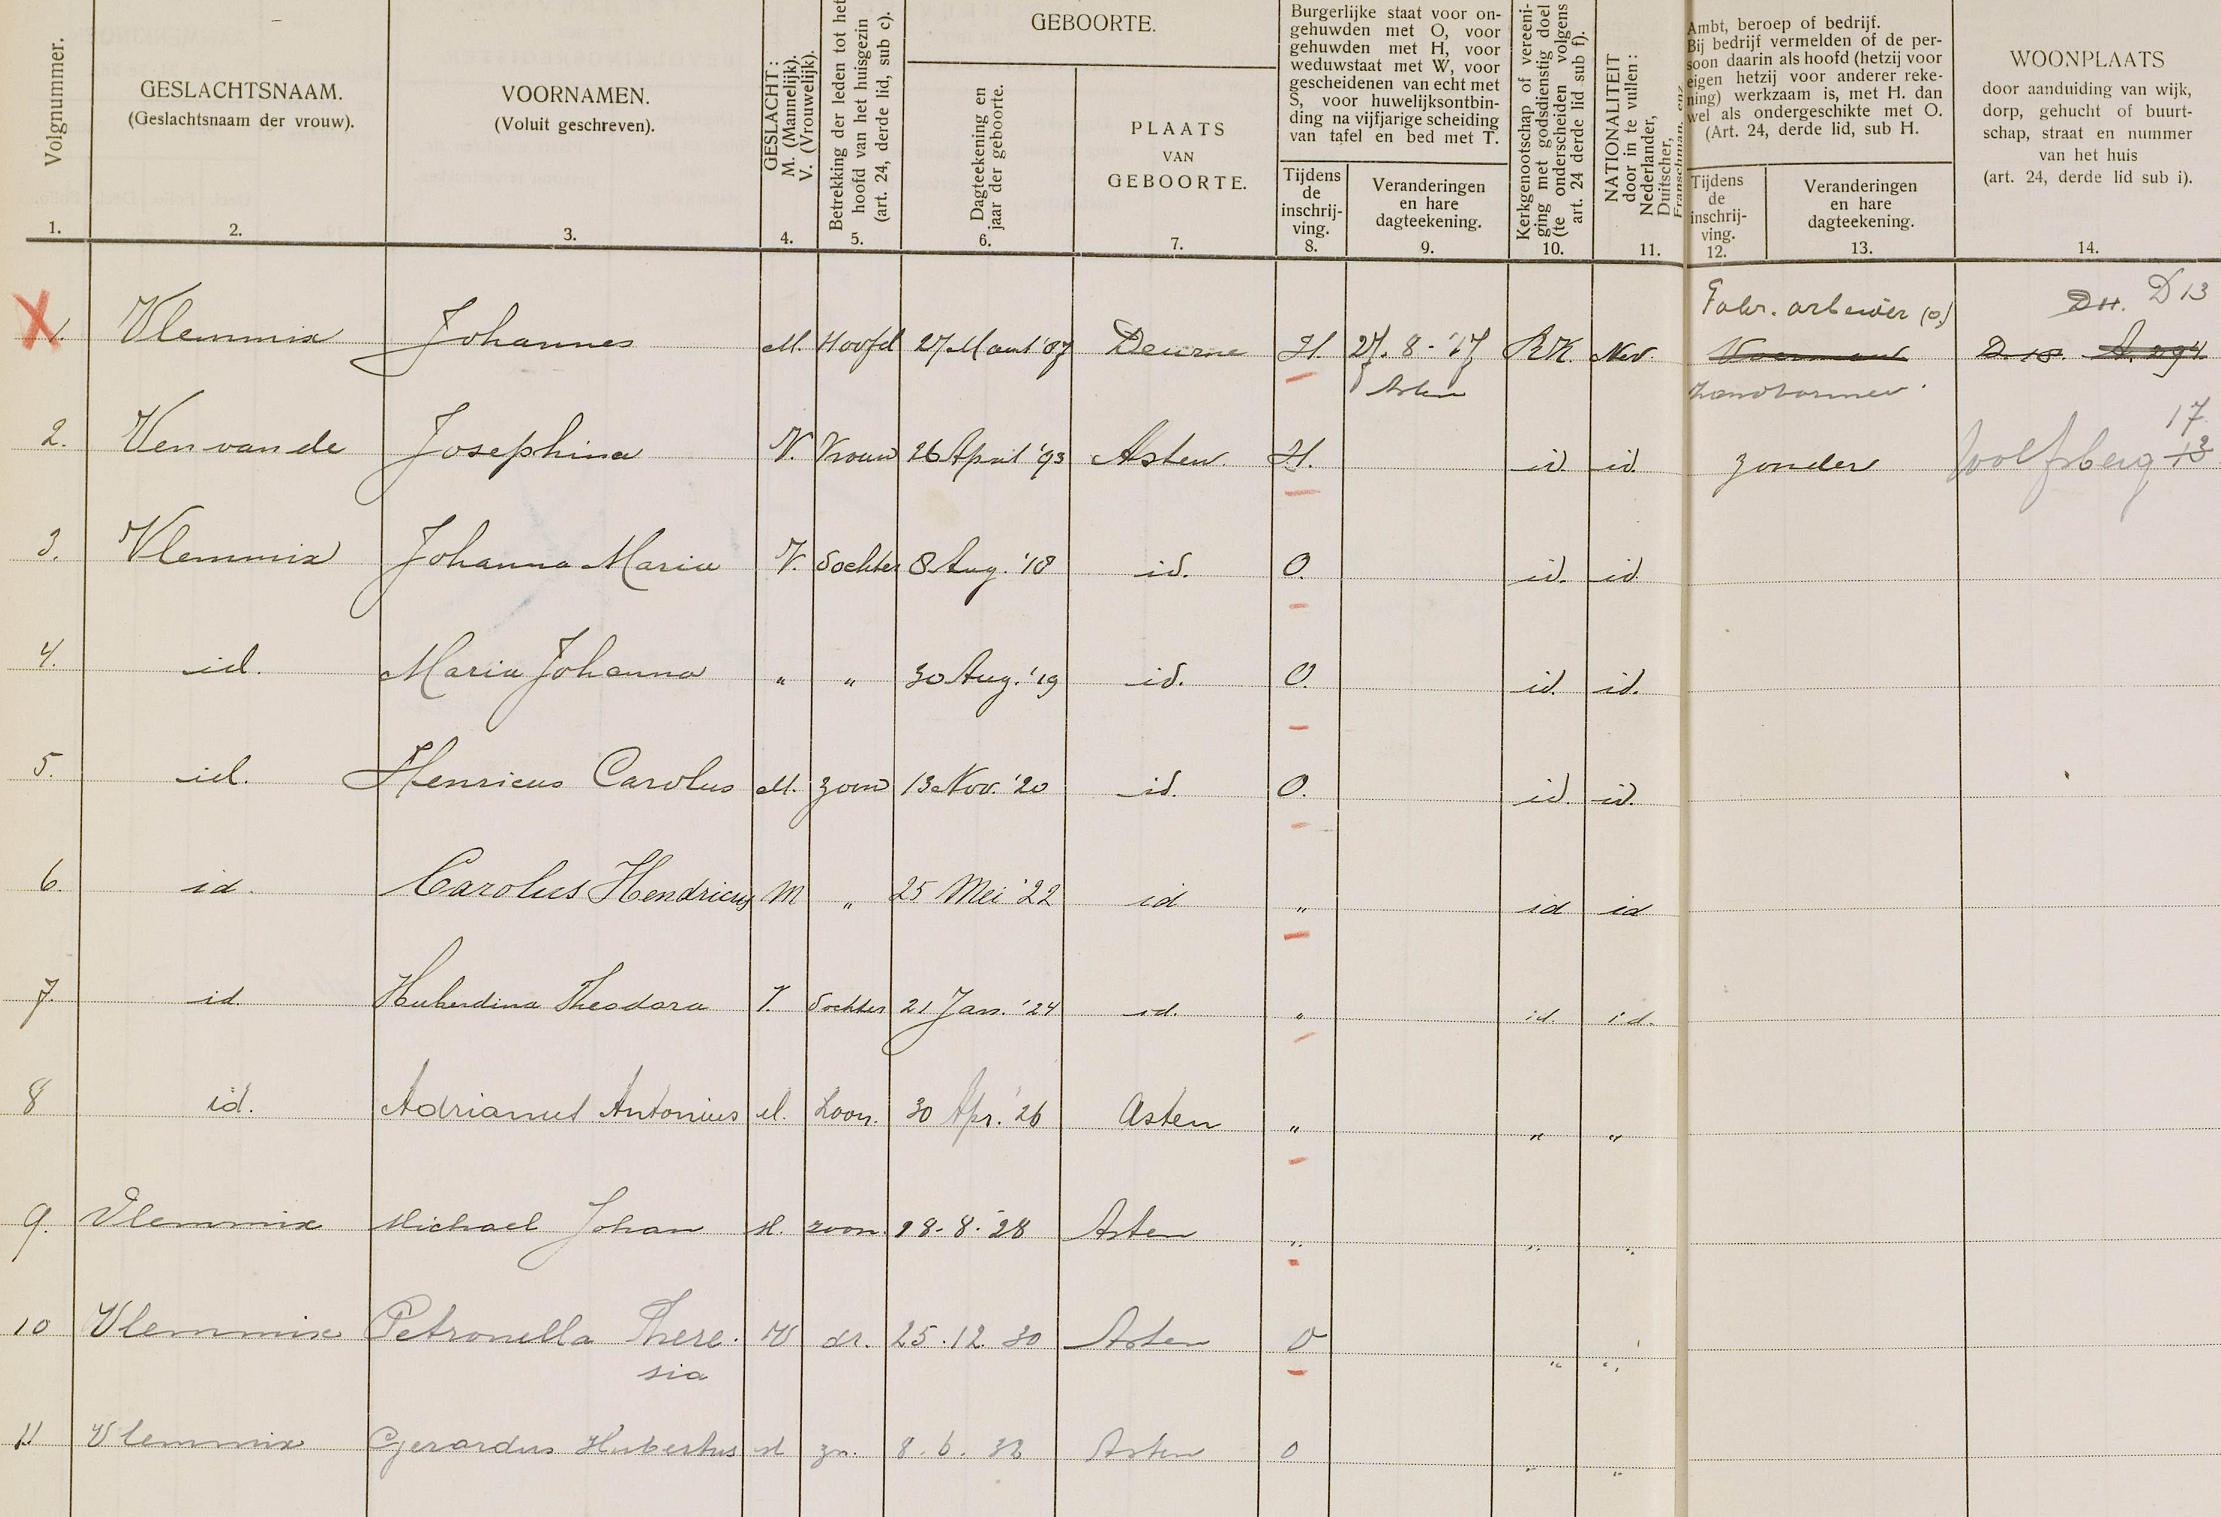 Volgnummer.
1.
GESLACHTSNAAM.
(Geslachtsnaam der vrouw).
2.
VOORNAMEN.
(Voluit geschreven).
3.
GESLACHT:
M. (Mannelijk).
V. (Vrouwelijk).
4.
Betrekking der leden tot het
hoofd van het huisgezin
(art. 24, derde lid, sub c).
5.
GEBOORTE.
Dagteekening en
jaar der geboorte.
6.
PLAATS
VAN
GEBOORTE.
7.
Burgerlijke staat voor on-
gehuwden met O, voor
gehuwden met H, voor
weduwstaat met W, voor
gescheidenen van echt met
S, voor huwelijksontbin-
ding na vijfjarige scheiding
van tafel en bed met T.
Tijdens
de
inschrij-
ving.
8.
Veranderingen
en hare
dagteekening.
9.
Kerkgenootschap of vereeni-
ging met godsdienstig doel
(te onderscheiden volgens
art. 24 derde lid sub f).
10.
NATIONALITEIT
door in te vullen:
Nederlander,
Duitscher,
Franschman, enz.
11.
Ambt, beroep of bedrijf.
Bij bedrijf vermelden of de per-
soon daarin als hoofd (hetzij voor
eigen hetzij voor anderer reke-
ning) werkzaam is, met H. dan
wel als ondergeschikte met O.
(Art. 24, derde lid, sub H.
Tijdens
de
inschrij-
ving.
12.
Veranderingen
en hare
dagteekening.
13.
WOONPLAATS
door aanduiding van wijk,
dorp, gehucht of buurt-
schap, straat en nummer
van het huis
(art. 24, derde lid sub i).
14.
Fabr. arbeider (o) D 11. D 13
X 1. Vlemmix Johannes M. Hoofd 27 Maart '87 Deurne H. 27. 8 - '17 R.K. Ned. Voerman D. 18. A. 294.
Asten
2. Ven van de Josephina V. Vrouw 26 April '93 Asten. H. id id. zonder Wolfsberg 13 17
3. Vlemmix Johanna Maria V. dochter 8 Aug. '18 id. O. id. id.
4. id. Maria Johanna " " 30 Aug. '19 id. O. id. id.
5. id. Henricus Carolus M. zoon 13 Nov. '20 id. O. id. id.
6. id. Carolus Hendricus M " 25 Mei '22 id " id id
7. id. Huberdina Theodora V. dochter 21 Jan. '24 id. " id. id.
8 id. Adrianus Antonius M. Zoon. 30 Apr. '26 Asten " " "
9. Vlemmix Michael Johan M. zoon. 18-8-'28 Asten " " "
10 Vlemmix Petronella There- V dr. 25.12.30 Asten O " "
sia
11 Vlemmix Gerardus Hubertus M zn. 8.6. 32 Asten O " "